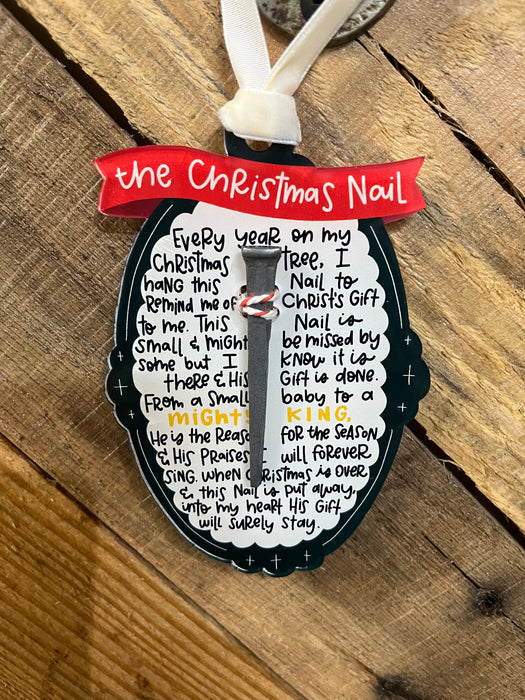 the Christmas Nail
Every year on my
Christmas tree, I
hang this Nail to
Remind me of Christ's Gift
to me. This Nail is
small & might be missed by
some but I know it is
there & His Gift is done.
From a small baby to a
mighty KING.
He is the Reason for the season
& His Praises I will forever
sing. when Christmas is over
& this Nail is put away,
into my heart His Gift
will surely stay.